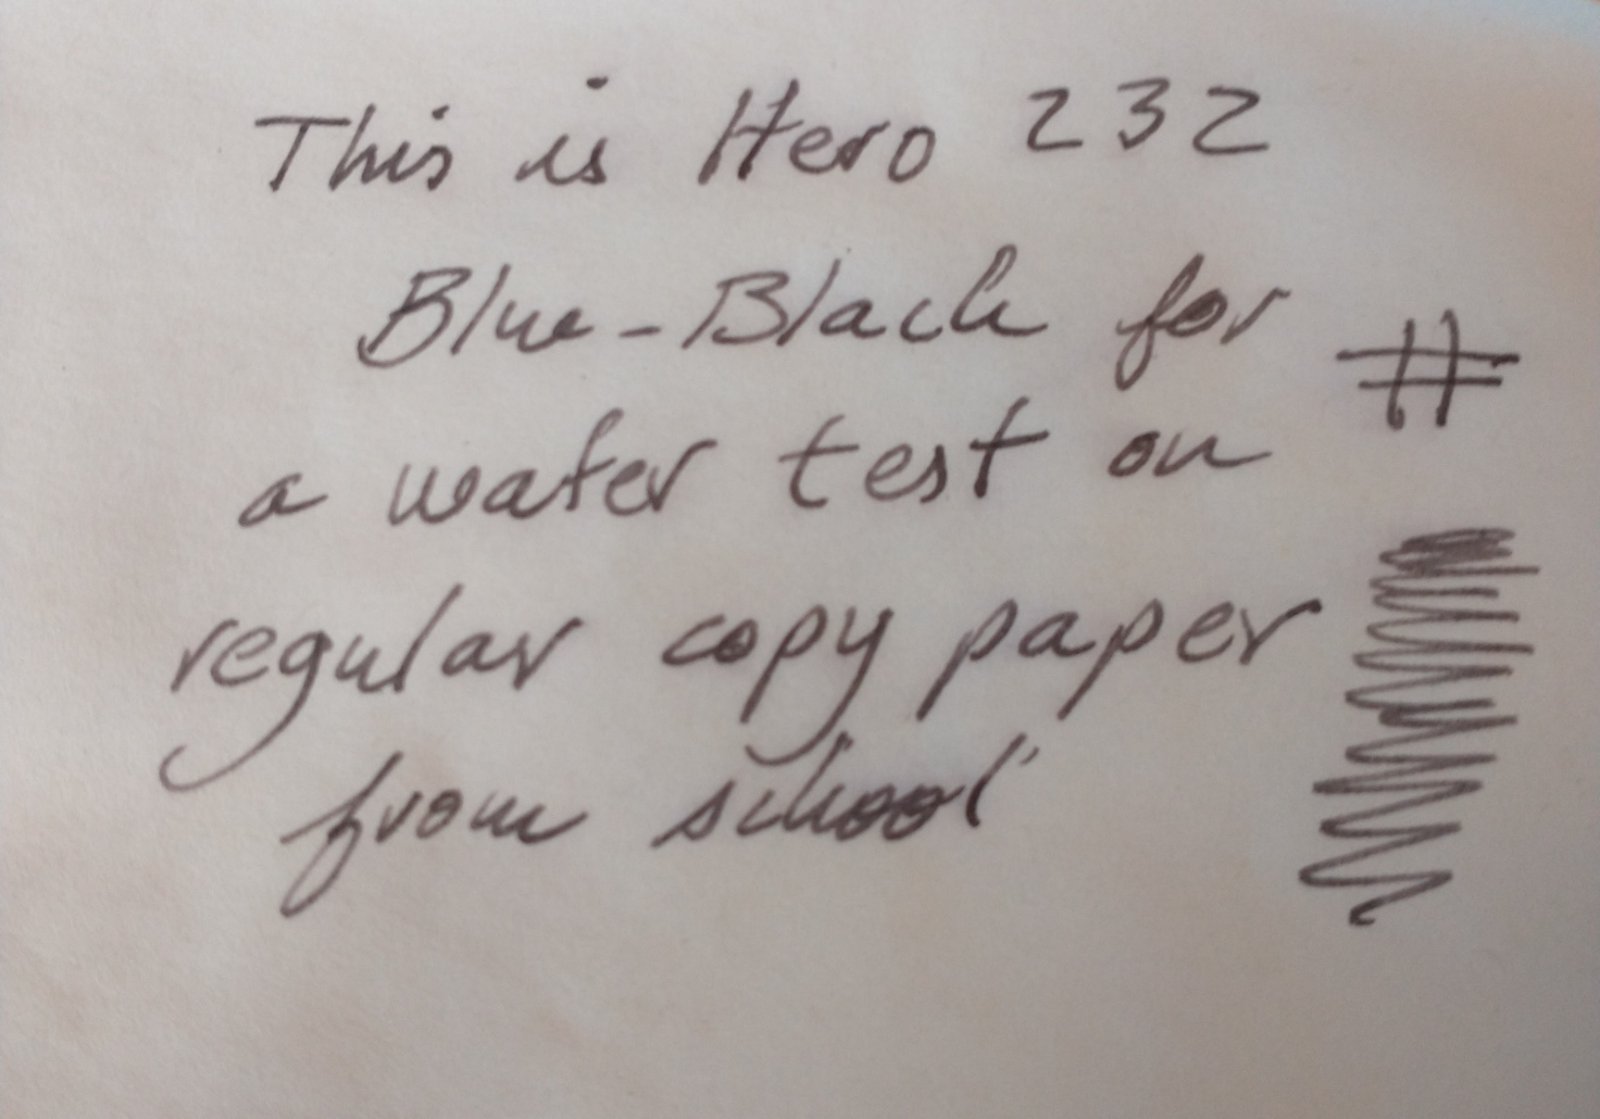 This is Hero 232
Blue-Black for
a water test on
regular copy paper
from school